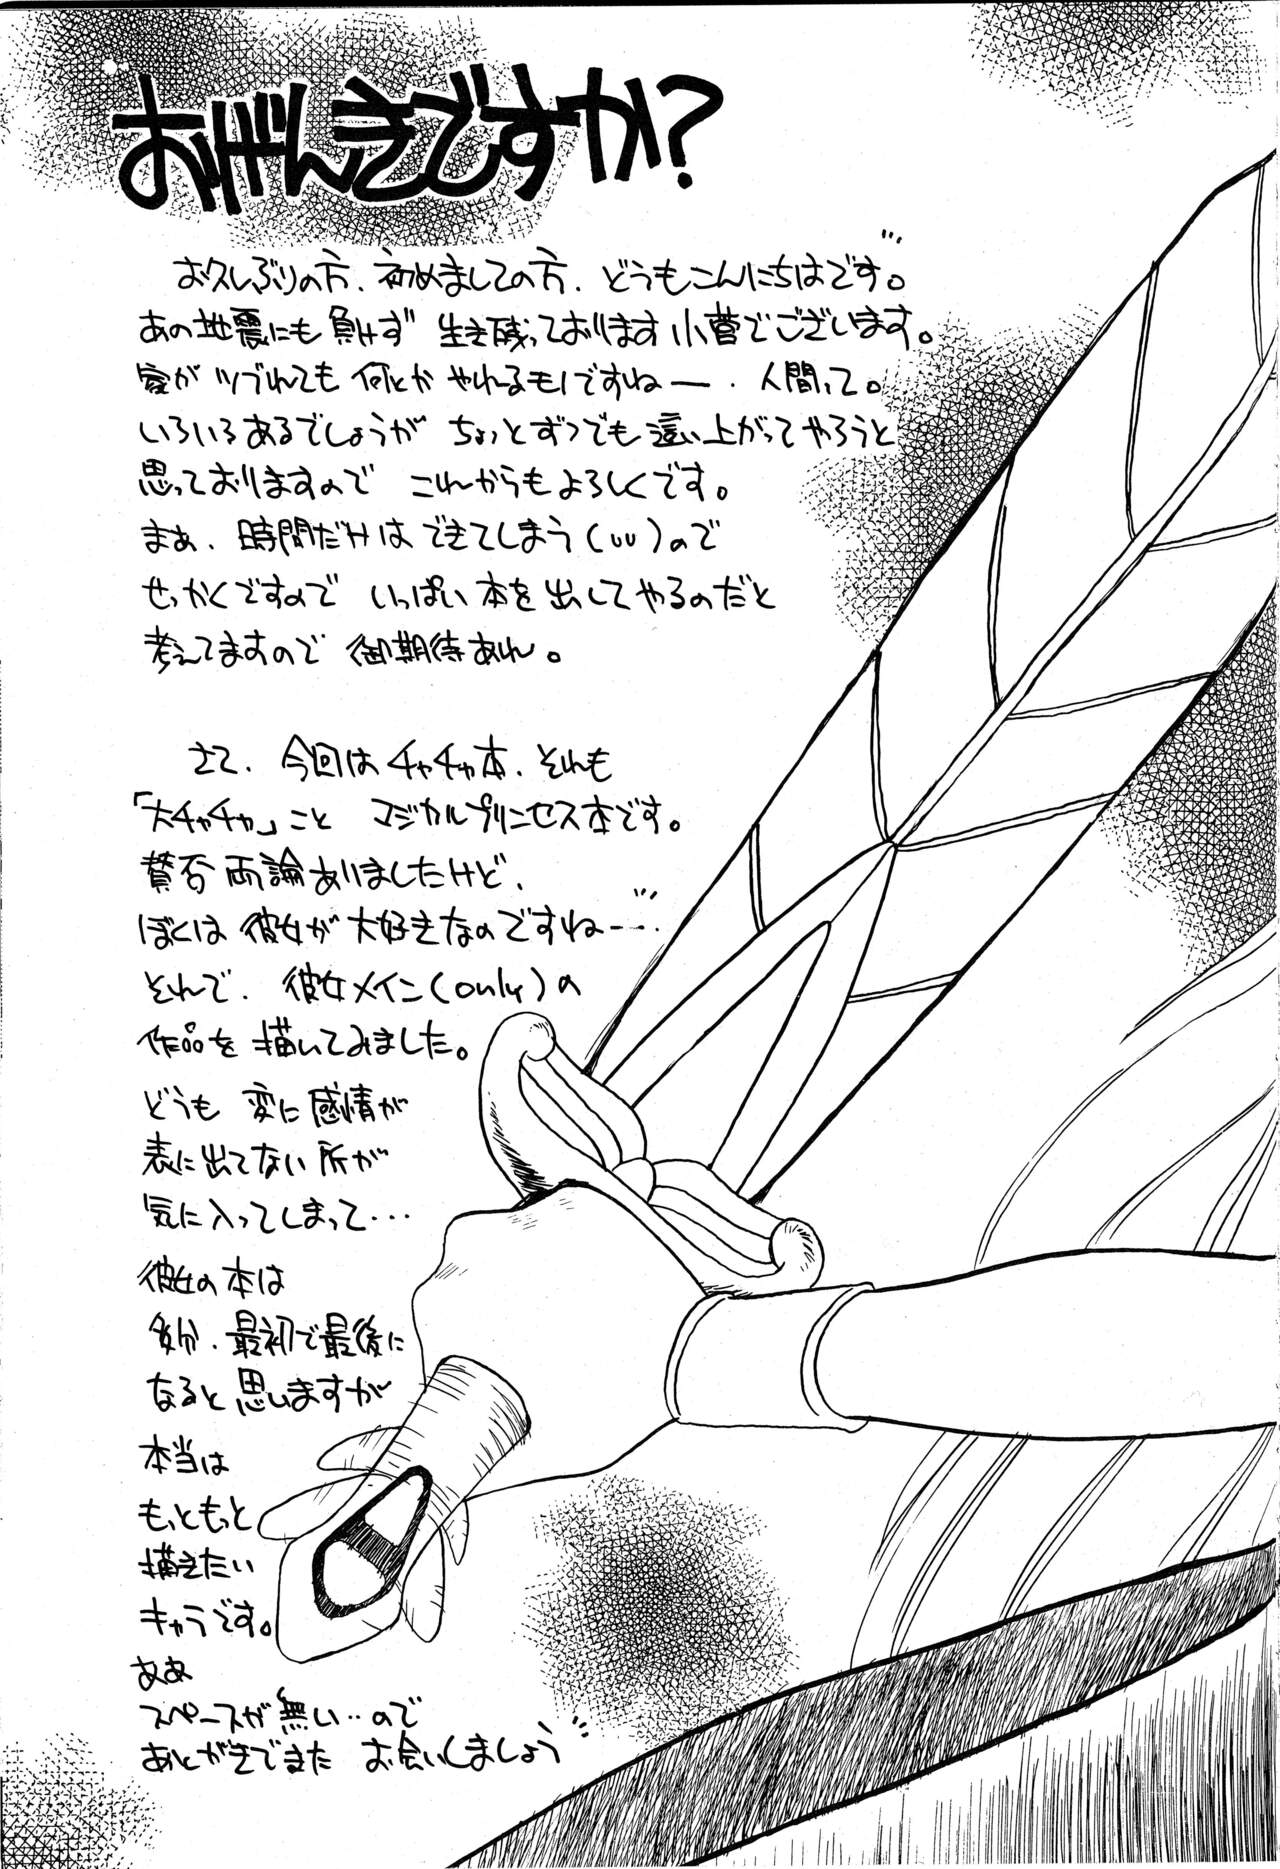 おげんきですか?
お久しぶりの方、初めましての方、どうもこんにちはです。
あの地震にも負けず 生き残っております小菅でございます。
家がツブれても 何とか やれるものですねー、人間って。
いろいろあるでしょうが ちょっとずつでも這い上がってやろうと
思っておりますので これからもよろしくです。
まあ、時間だけはできてしまう( )ので
せっかくですので いっぱい本を出してやるのだと
考えてますので 御期待あれ。
さて、今回はチャチャ本、それも
「大チャチャ」こと マジカルプリンセス本です。
賛否両論ありましたけど、
ぼくは彼女が大好きなのですねー…
それで、彼女メイン(only)の
作品を描いてみました。
どうも 変に感情が
表に出てない所が
気に入ってしまって…
彼女の本は
多分、最初で最後に
なると思いますが
本当は
もっともっと
描きたい
キャラです。
ああ
スペースが無い…ので
あとがきでまた お会いしましょう